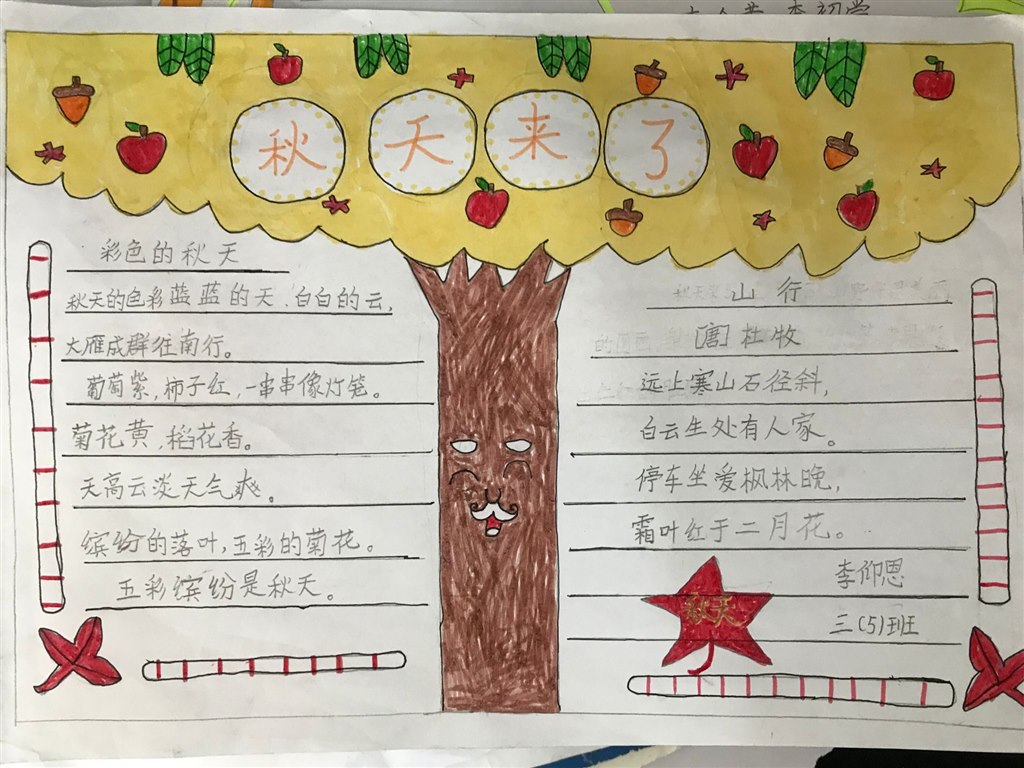 秋天来了
彩色的秋天
秋天的色彩蓝蓝的天、白白的云,
大雁成群往南行。
葡萄紫,柿子红,一串串像灯笼。
菊花黄,稻花香。
天高云淡天气爽。
缤纷的落叶,五彩的菊花。
五彩缤纷是秋天。
山行
[唐]杜牧
远上寒山石径斜,
白云生处有人家。
停车坐爱枫林晚,
霜叶红于二月花。
李仰恩
三(5)班
秋天